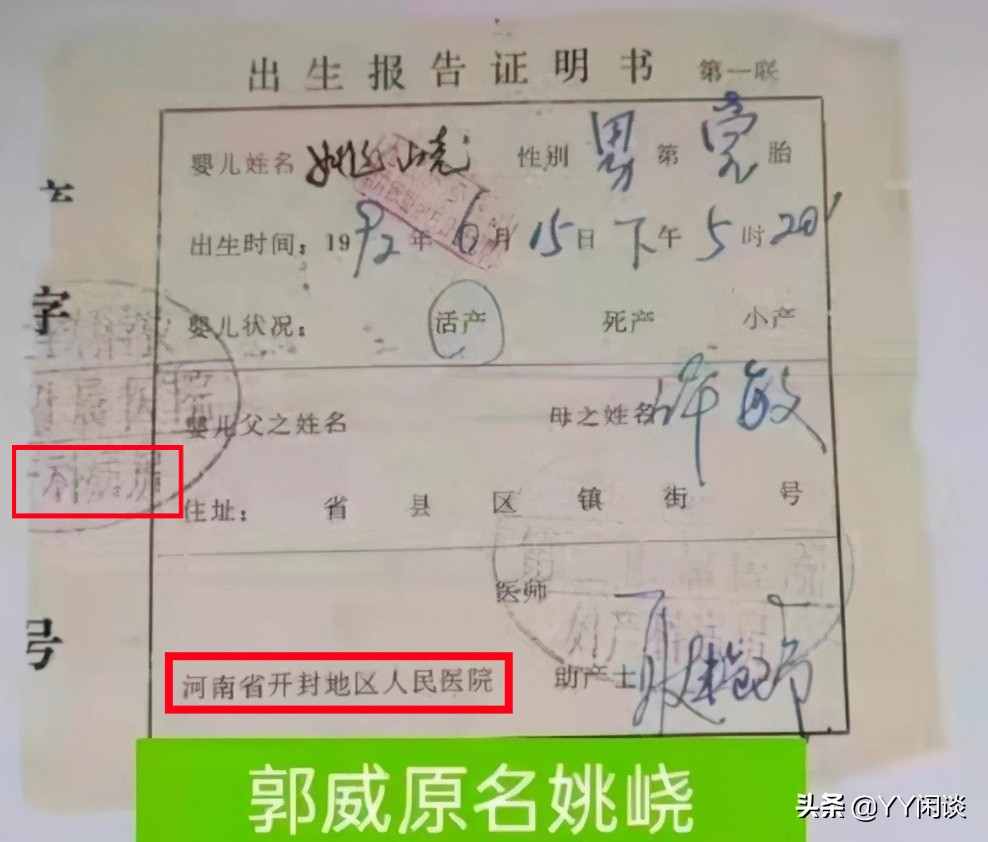 出生报告证明书 第一联
婴儿姓名 姚峣 性别 男 第 壹 胎
出生时间：1992年6月15日下午5时20'
字
婴儿状况： 活产 死产 小产
婴儿父之姓名 母之姓名 许敏
住址： 省 县 区 镇 街 号
医师
号
河南省开封地区人民医院 助产士
郭威原名姚峣
头条 @YY闲谈